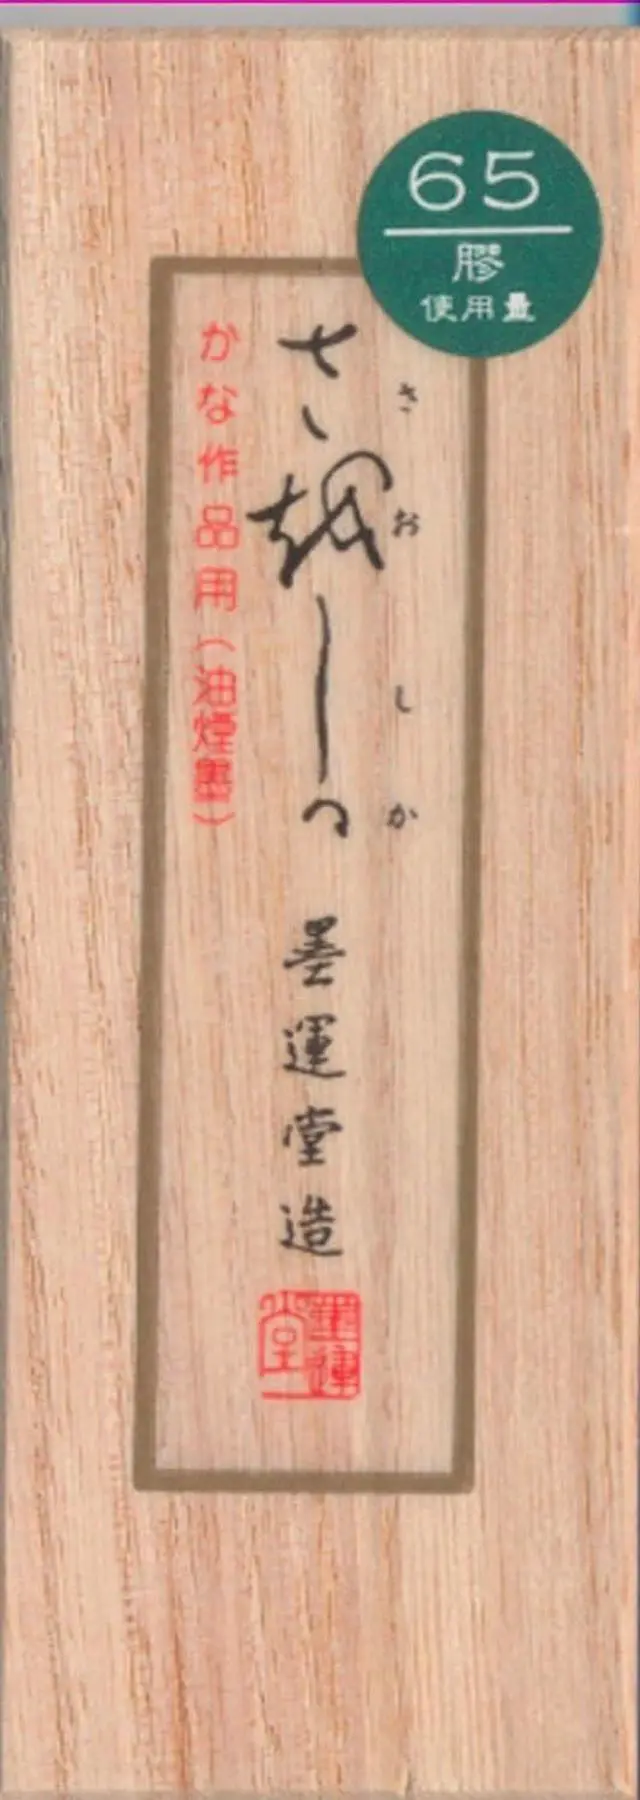 65
膠
使用量
さおしか
さ越し可
墨運堂造
墨運堂
かな作品用(油煙墨)